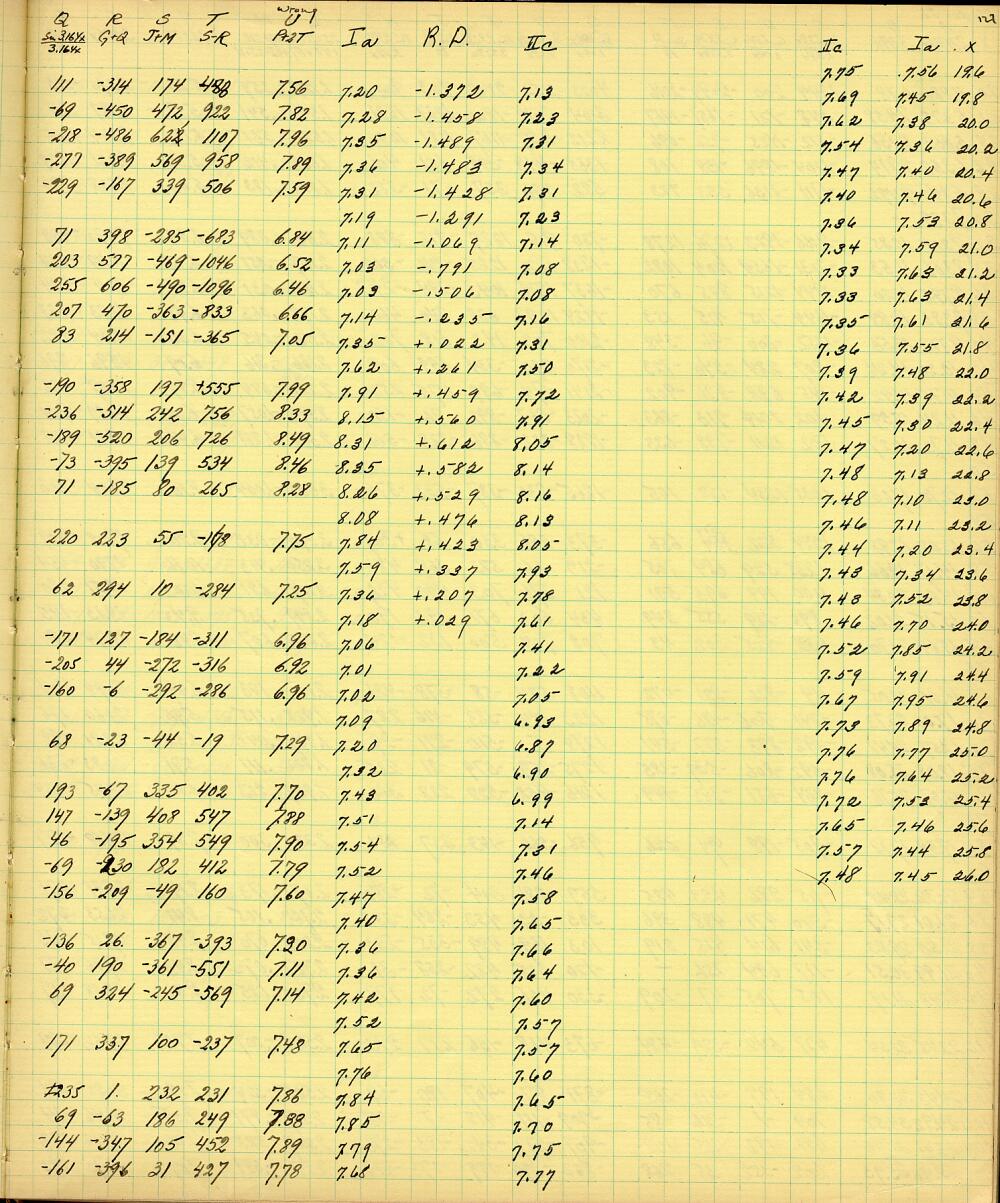 wrong 127
Q R S T U
Sin 3.164x / 3.164x G+Q J+M S-R P+2T Ia R.D. IIc Ic Ia x
7.75 7.56 19.6
111 -314 174 488 7.56 7.20 -1.372 7.13 7.69 7.45 19.8
-69 -450 472 922 7.82 7.28 -1.458 7.23 7.62 7.38 20.0
-218 -486 622 1107 7.96 7.35 -1.489 7.31 7.54 7.36 20.2
-277 -389 569 958 7.89 7.36 -1.483 7.34 7.47 7.40 20.4
-229 -167 339 506 7.59 7.31 -1.428 7.31 7.40 7.46 20.6
7.19 -1.291 7.23 7.36 7.53 20.8
71 398 -285 -683 6.84 7.11 -1.069 7.14 7.34 7.59 21.0
203 577 -469 -1046 6.52 7.03 -.791 7.08 7.33 7.63 21.2
255 606 -490 -1096 6.46 7.03 -.506 7.08 7.33 7.63 21.4
207 470 -363 -833 6.66 7.14 -.235 7.16 7.35 7.61 21.6
83 214 -151 -365 7.05 7.35 +.022 7.31 7.36 7.55 21.8
7.62 +.261 7.50 7.39 7.48 22.0
-190 -358 197 +555 7.99 7.91 +.459 7.72 7.42 7.39 22.2
-236 -514 242 756 8.33 8.15 +.560 7.91 7.45 7.30 22.4
-189 -520 206 726 8.49 8.31 +.612 8.05 7.47 7.20 22.6
-73 -395 139 534 8.46 8.35 +.582 8.14 7.48 7.13 22.8
71 -185 80 265 8.28 8.26 +.529 8.16 7.48 7.10 23.0
8.08 +.476 8.13 7.46 7.11 23.2
220 223 55 7.75 7.84 +.423 8.05 7.44 7.20 23.4
7.59 +.337 7.93 7.43 7.34 23.6
62 294 10 -284 7.25 7.36 +.207 7.78 7.43 7.52 23.8
7.18 +.029 7.61 7.46 7.70 24.0
-171 127 -184 -311 6.96 7.06 7.41 7.52 7.85 24.2
-205 44 -272 -316 6.92 7.01 7.22 7.59 7.91 24.4
-160 -6 -292 -286 6.96 7.02 7.05 7.67 7.95 24.6
7.09 6.93 7.73 7.89 24.8
68 -23 -44 -19 7.29 7.20 6.87 7.76 7.77 25.0
7.32 6.90 7.76 7.64 25.2
193 -67 335 402 7.70 7.43 6.99 7.72 7.53 25.4
147 -139 408 547 7.88 7.51 7.14 7.65 7.46 25.6
46 -195 354 549 7.90 7.54 7.31 7.57 7.44 25.8
-69 -230 182 412 7.79 7.52 7.46 7.48 7.45 26.0
-156 -209 -49 160 7.60 7.47 7.58
7.40 7.65
-136 26. -367 -393 7.20 7.36 7.66
-40 190 -361 -551 7.11 7.36 7.64
69 324 -245 -569 7.14 7.42 7.60
7.52 7.57
171 337 100 -237 7.48 7.65 7.57
7.76 7.60
+235 1. 232 231 7.86 7.84 7.65
69 -63 186 249 7.88 7.85 7.70
-144 -347 105 452 7.89 7.79 7.75
-161 -396 31 427 7.78 7.68 7.77